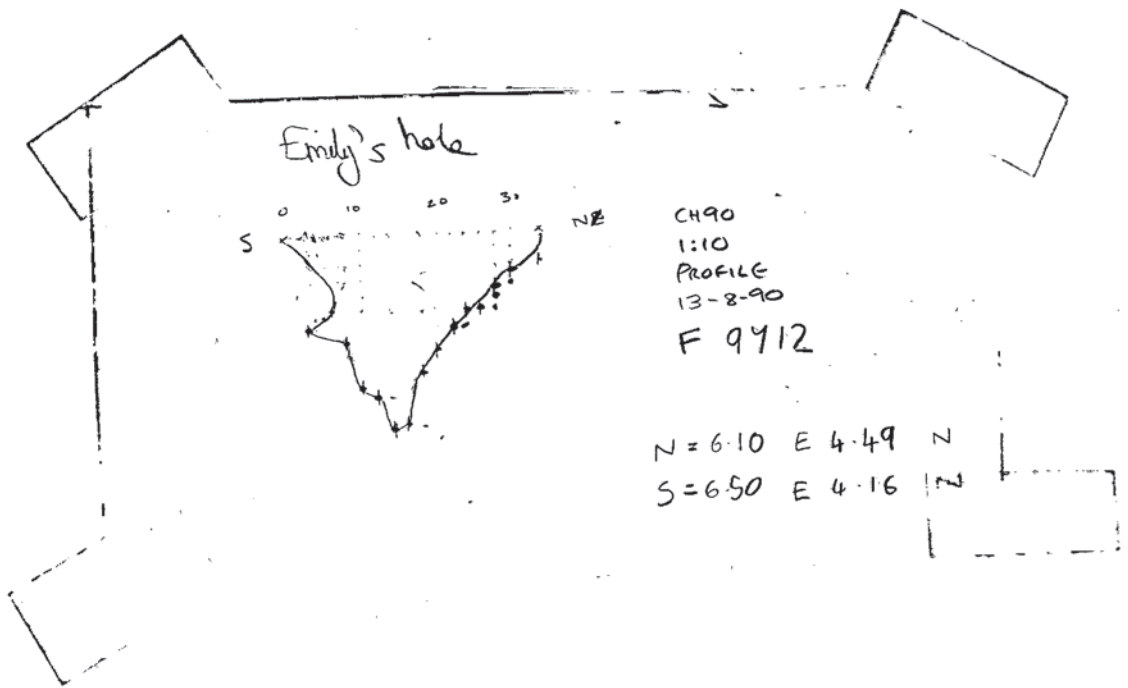 Emily's hole
0 10 20 30
S N
CH90
1:10
PROFILE
13-8-90
F 9712
N = 6.10 E 4.49 N
S = 6.50 E 4.16 N